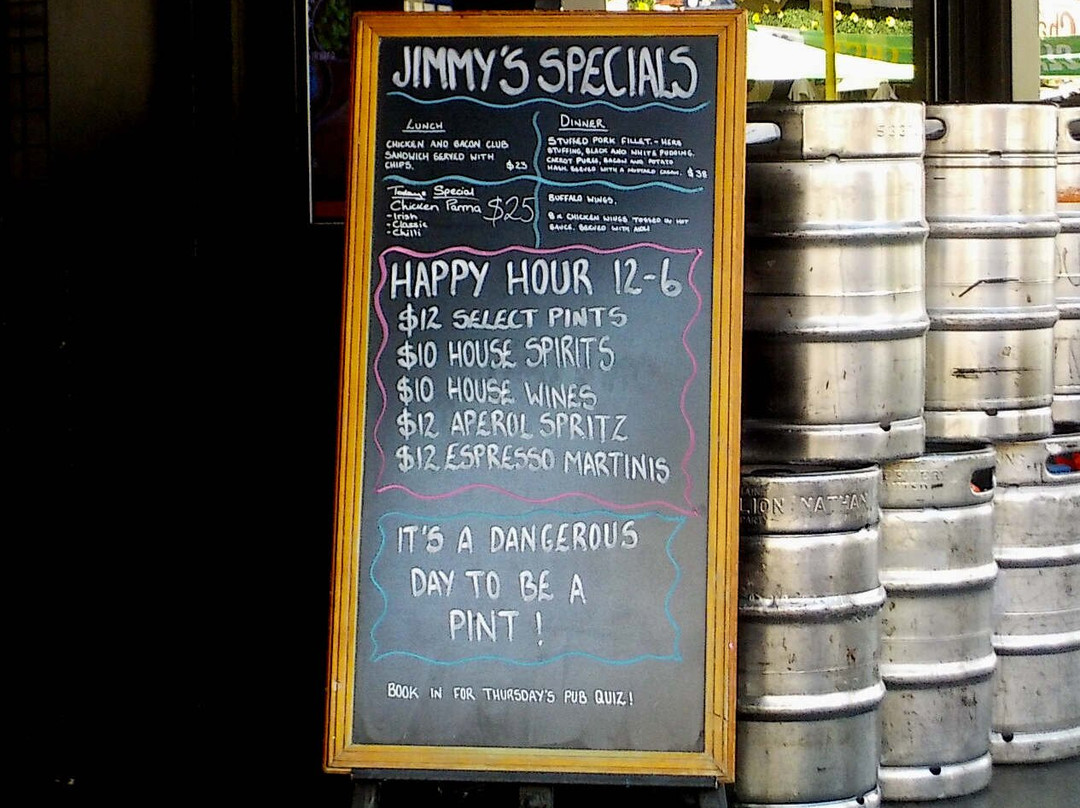 JIMMY'S SPECIALS
LUNCH
CHICKEN AND BACON CLUB
SANDWICH SERVED WITH
CHIPS. $23
DINNER
STUFFED PORK FILLET. - HERB
STUFFING, BLACK AND WHITE PUDDING.
CARROT PUREE, BACON AND POTATO
HASH. SERVED WITH A MUSTARD CREAM. $38
Today's Special
Chicken Parma $25
- Irish
- Classic
- Chilli
BUFFALO WINGS.
8 x CHICKEN WINGS TOSSED IN HOT
SAUCE. SERVED WITH AIOLI
HAPPY HOUR 12-6
$12 SELECT PINTS
$10 HOUSE SPIRITS
$10 HOUSE WINES
$12 APEROL SPRITZ
$12 ESPRESSO MARTINIS
IT'S A DANGEROUS
DAY TO BE A
PINT !
BOOK IN FOR THURSDAY'S PUB QUIZ!
LION NATHAN